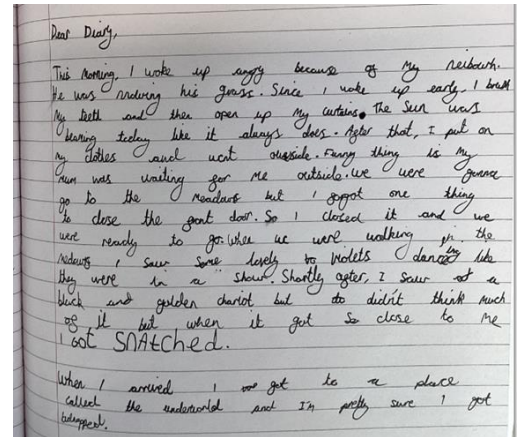 Dear Diary,
This morning, I woke up angry because of my neibourh.
He was moving his grass. Since I woke up early. I brush
my teeth and then open up my curtains. The sun was
beaming today like it always does. After that, I put on
my clothes and went ouside. Funny thing is my
mum was waiting for me outside. We were gunna
go to the meadows but I forgot one thing
to close the front door. So I closed it and we
were ready to go. When we were walking in the
medows I saw some lovely violets dancing like
they were in a show. Shortly after, I saw a
black and golden chariot but didn't think much
of it but when it got so close to me
I GOT SNAtched.
When I arrived I got to a place
called the underworld and I'm pretty sure I got